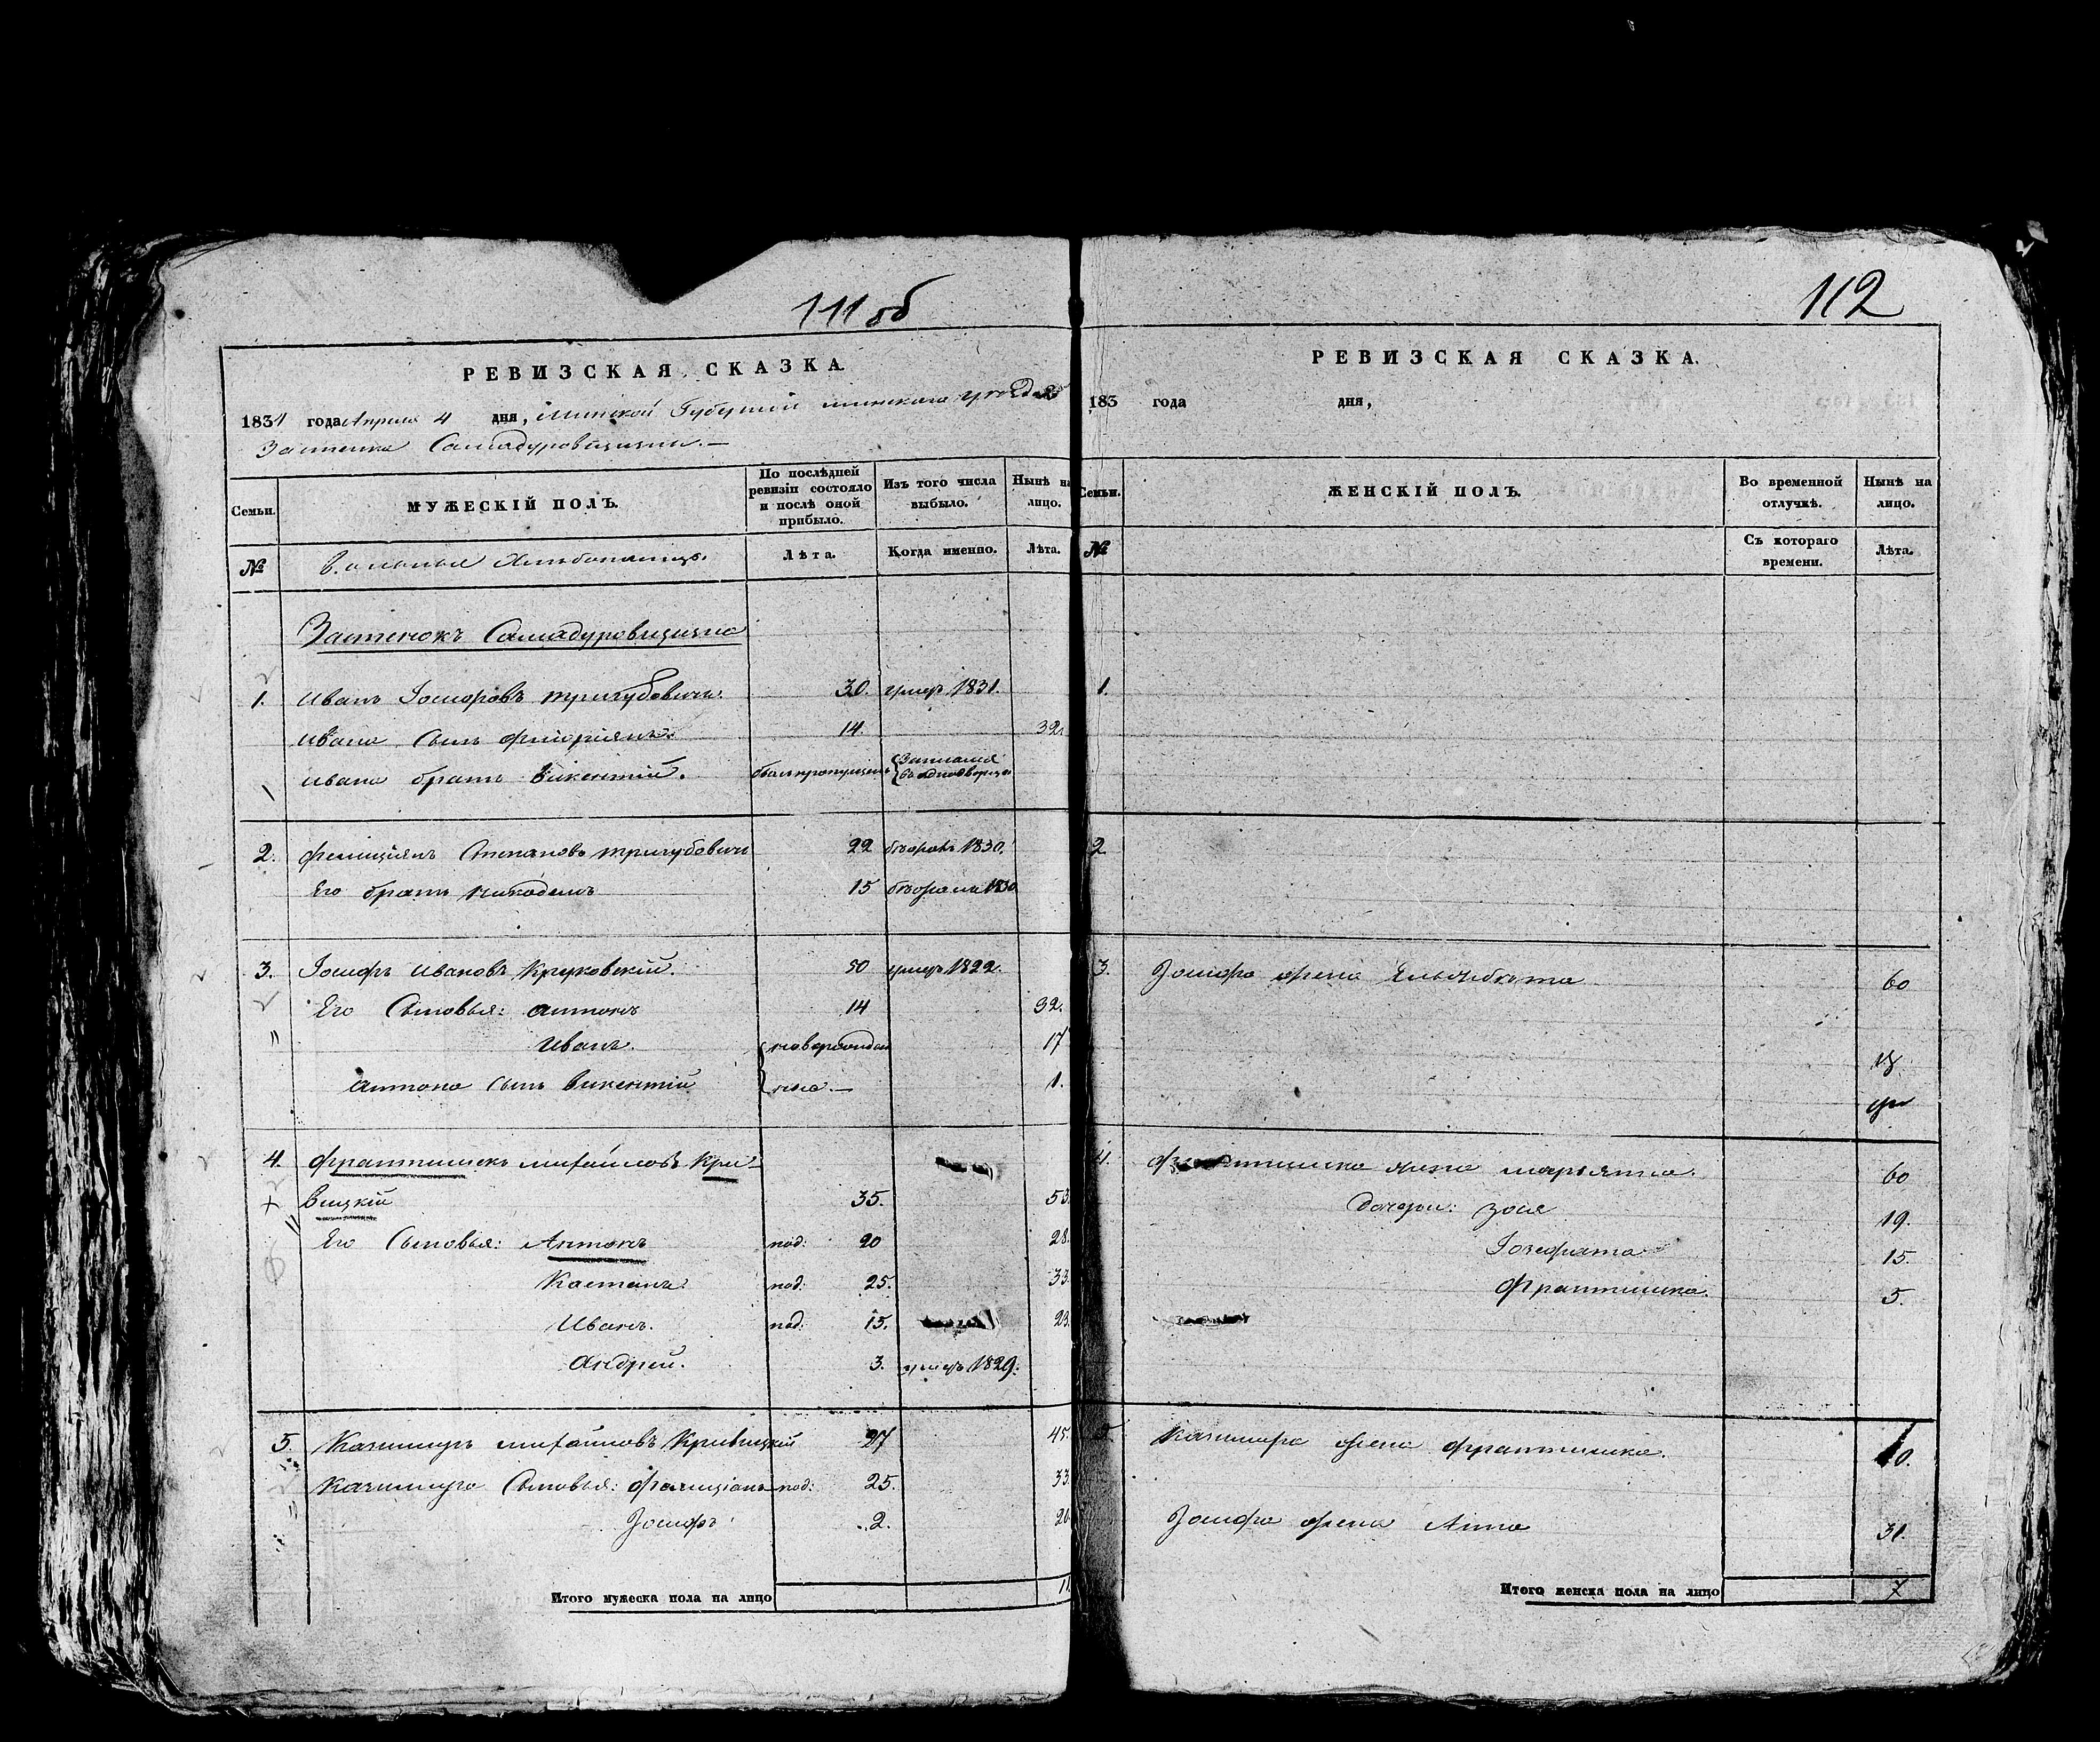 111 об
РЕВИЗСКАЯ СКАЗКА.
1834 года Апреля 4 дня, Минской Губернии минского уезда
Застенка Самадуровщизны.—
Семьи.
МУЖЕСКІЙ ПОЛЪ.
По послѣдней ревизіи состояло и послѣ оной прибыло.
Изъ того числа выбыло.
Нынѣ на лицо.
№
Лѣта.
Когда именно.
Лѣта.
Застенокъ Самадуровщизна
1. Иванъ Іосифовъ Тригубовичъ 30. умеръ 1831.
Ивана сынъ Флоріянъ 14 32.
Ивана братъ Викентій.
2. Фелиціянъ Степановъ Тригубовичъ 22 1830.
Его братъ Никодемъ 15 1830
3. Іосифъ Ивановъ Круковскій. 50 умеръ 1822.
Его Сыновья: Антонъ 14 32.
Иванъ. 17
Антона сынъ Викентій 1.
4. Франтишекъ Михайловъ Кри-
вицкій 35. 53.
Его Сыновья: Антонъ под: 20 28.
Каетанъ под: 25. 33.
Иванъ. под: 15. 23.
Андрей. 3. умеръ 1829.
5. Казимиръ Михайловъ Кривицкій 27 45.
Казимира Сыновья: Фелиціанъ под: 25. 33.
Іосифъ 2. 20.
Итого мужеска пола на лицо 11
112
РЕВИЗСКАЯ СКАЗКА.
183 года дня,
Семьи.
ЖЕНСКІЙ ПОЛЪ.
Во временной отлучкѣ.
Нынѣ на лицо.
№
Съ котораго времени.
Лѣта.
1.
2
3. Іосифа жена Ельзбѣта 60
4. жена Марьянна. 60
Дочери: Зося 19.
Іозефата 15.
Франтишка. 5.
Казимира жена Франтишка.
Іосифа жена Анна 31.
Итого женска пола на лицо 7